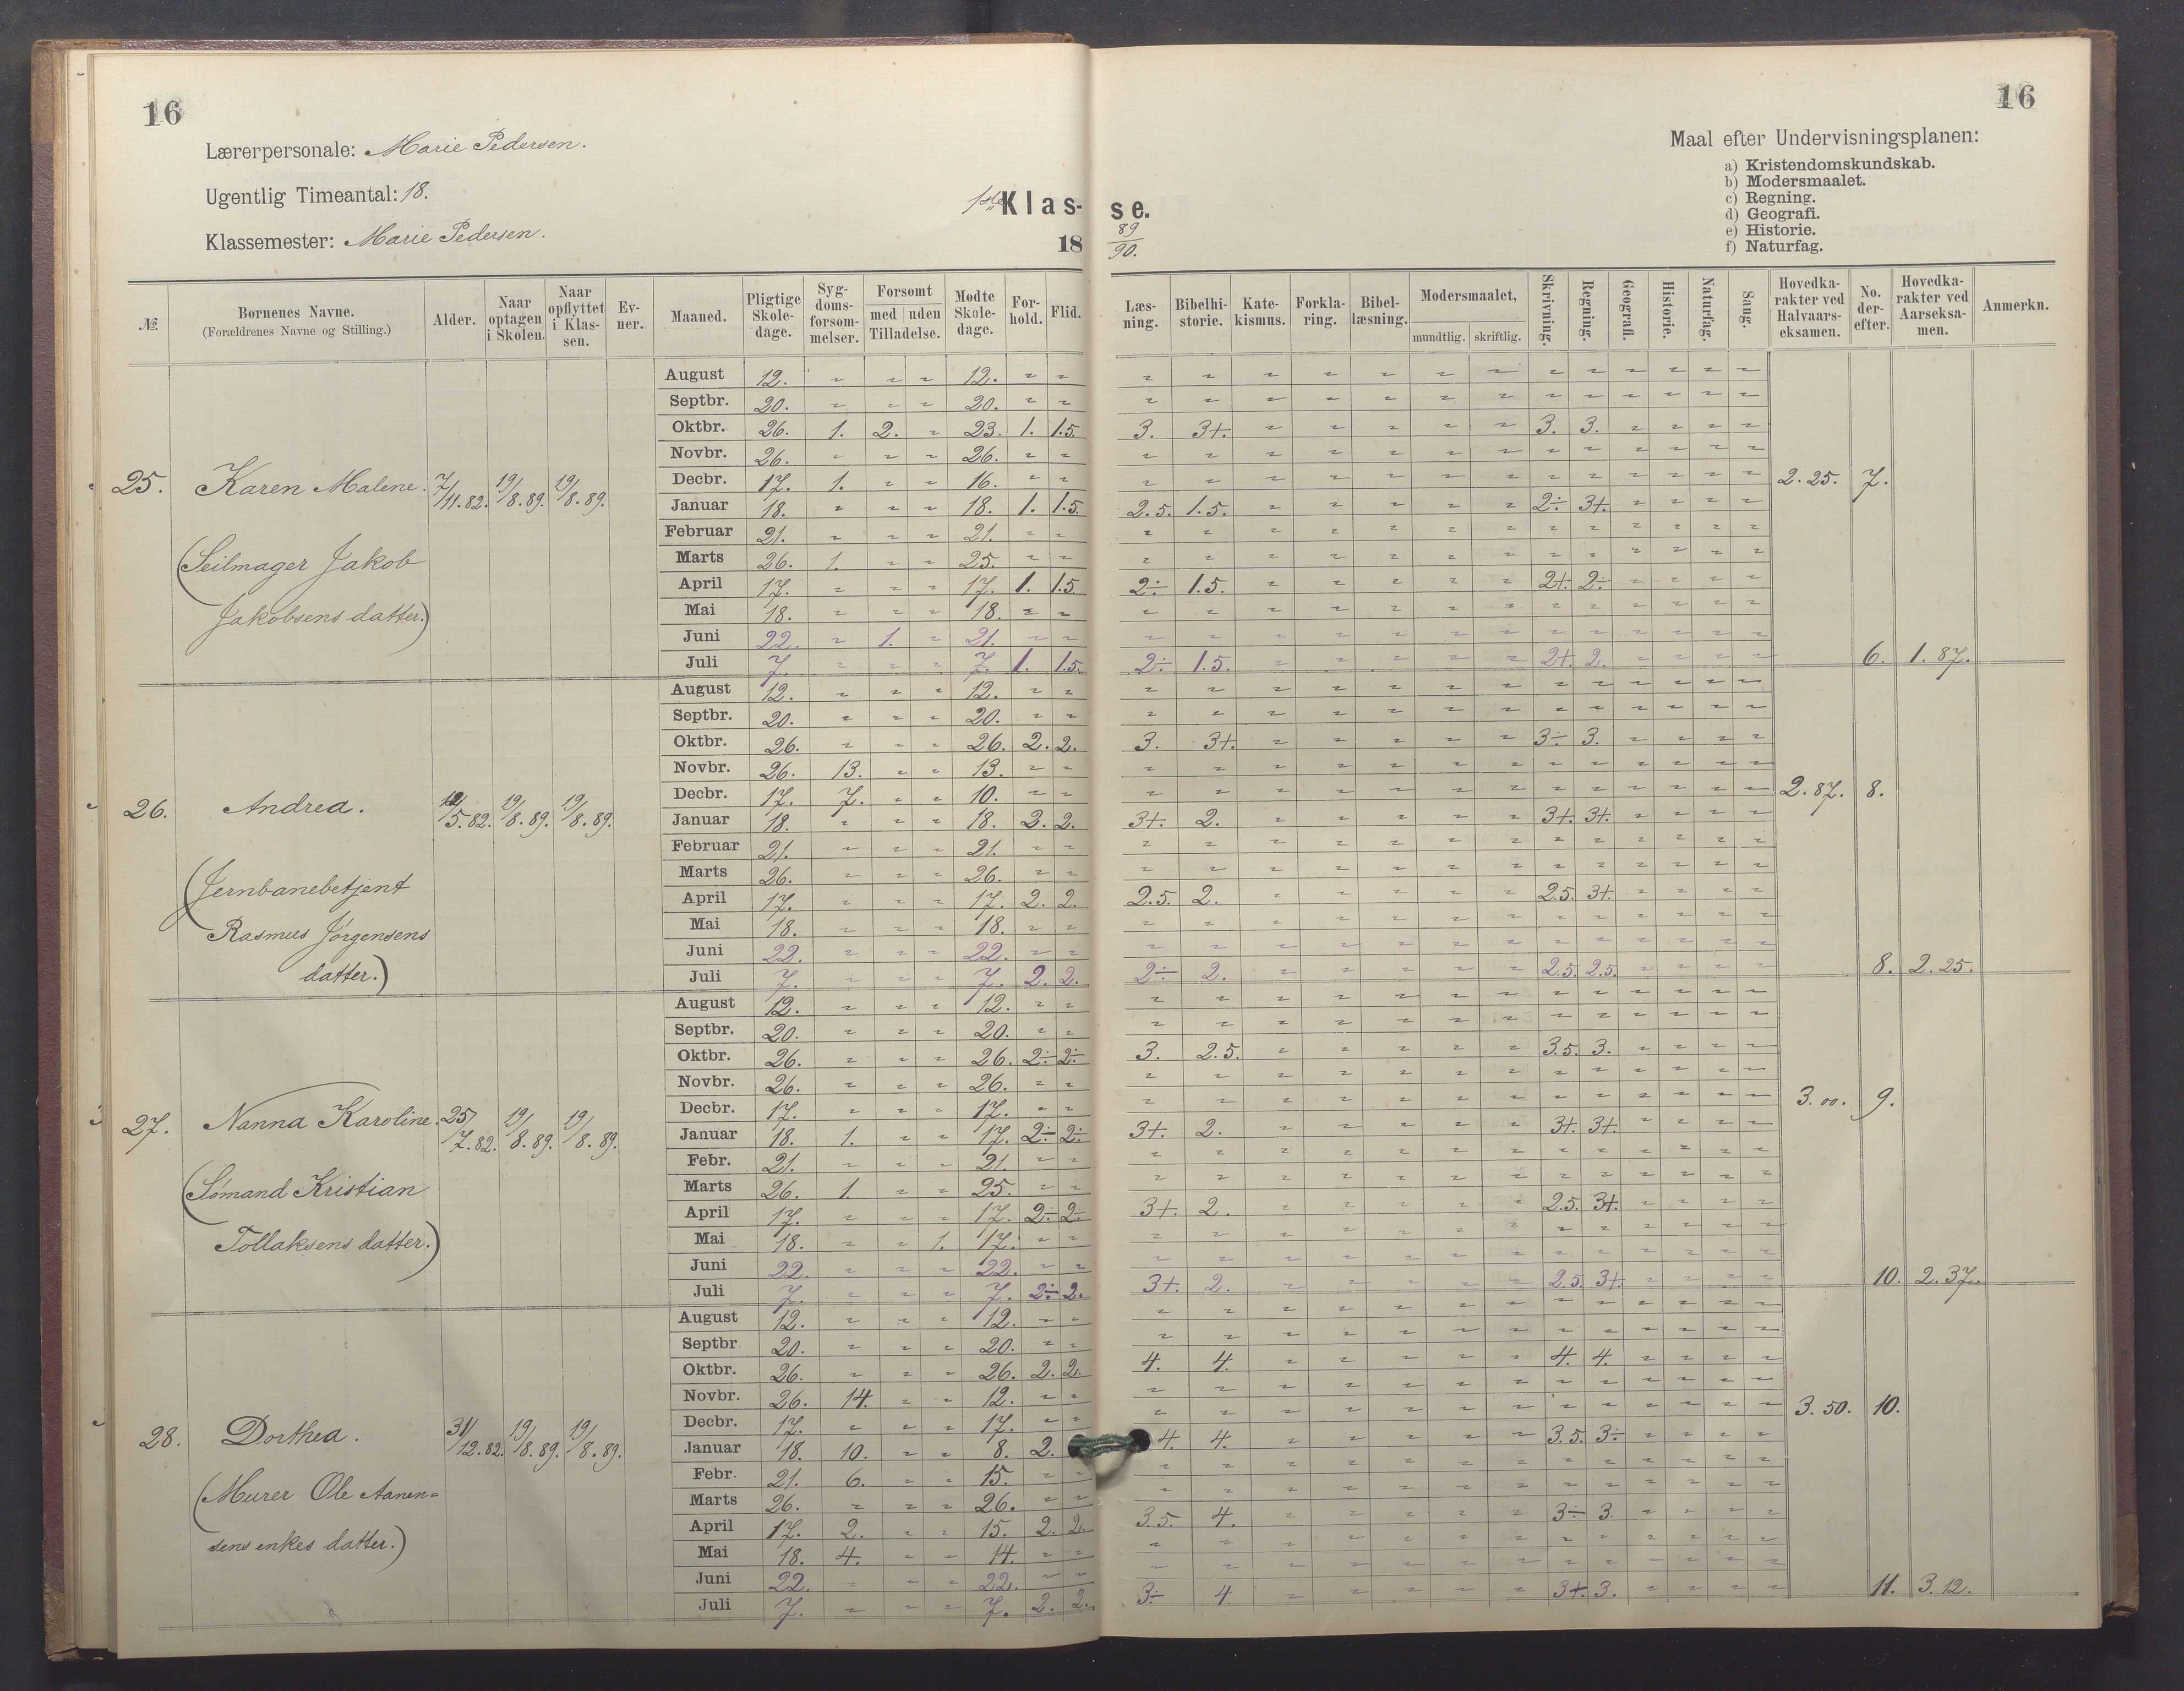 16
16
Lærerpersonale: Marie Pedersen.
Ugentlig Timeantal: 18.
Klassemester: Marie Pedersen.
1ste Klas- se.
18 89/90.
Maal efter Undervisningsplanen:
a) Kristendomskundskab.
b) Modersmaalet.
c) Regning.
d) Geografi.
e) Historie.
f) Naturfag.
№ Børnenes Navne. (Forældrenes Navne og Stilling.) Alder. Naar optagen i Skolen. Naar opflyttet i Klassen. Evner. Maaned. Pligtige Skoledage. Sygdomsforsømmelser. Forsømt med | uden Tilladelse. Mødte Skoledage. Forhold. Flid. Læsning. Bibelhistorie. Katekismus. Forklaring. Bibellæsning. Modersmaalet, mundtlig. skriftlig. Skrivning. Regning. Geografi. Historie. Naturfag. Sang. Hovedkarakter ved Halvaarseksamen. No. derefter. Hovedkarakter ved Aarseksamen. Anmerkn.
25. Karen Malene. 7/11.82. 19/8.89. 19/8.89.
(Seilmager Jakob
Jakobsens datter.)
August 12. " " " 12. " " " " " " " " " " " " " " "
Septbr. 20. " " " 20. " " " " " " " " " " " " " " "
Oktbr. 26. 1. 2. " 23. 1. 1.5. 3. 3+. " " " " " 3. 3. " " " "
Novbr. 26. " " " 26. " " " " " " " " " " " " " " "
Decbr. 17. 1. " " 16. " " " " " " " " " " " " " " " 2.25. 7.
Januar 18. " " " 18. 1. 1.5. 2.5. 1.5. " " " " " 2÷ 3+. " " " "
Februar 21. " " " 21. " " " " " " " " " " " " " " "
Marts 26. 1. " " 25. " " " " " " " " " " " " " " "
April 17. " " " 17. 1. 1.5 2÷ 1.5. " " " " " 2+. 2÷ " " " "
Mai 18. " " " 18. " " " " " " " " " " " " " " "
Juni 22. " 1. " 21. " " " " " " " " " " " " " " "
Juli 7. " " " 7. 1. 1.5. 2÷ 1.5. " " " " " 2+. 2. " " " " 6. 1.87.
26. Andrea. 5.82. 19/8.89. 19/8.89.
(Jernbanebetjent
Rasmus Jørgensens
datter.)
August 12. " " " 12. " " " " " " " " " " " " " " "
Septbr. 20. " " " 20. " " " " " " " " " " " " " " "
Oktbr. 26. " " " 26. 2. 2. 3. 3+. " " " " " 3÷ 3. " " " "
Novbr. 26. 13. " " 13. " " " " " " " " " " " " " " "
Decbr. 17. 7. " " 10. " " " " " " " " " " " " " " " 2.87. 8.
Januar 18. " " " 18. 2. 2. 3+. 2. " " " " " 3+. 3+. " " " "
Februar 21. " " " 21. " " " " " " " " " " " " " " "
Marts 26. " " " 26. " " " " " " " " " " " " " " "
April 17. " " " 17. 2. 2. 2.5. 2. " " " " " 2.5. 3+. " " " "
Mai 18. " " " 18. " " " " " " " " " " " " " " "
Juni 22. " " " 22. " " " " " " " " " " " " " " "
Juli 7. " " " 7. 2. 2. 2÷ 2. " " " " " 2.5. 2.5. " " " " 8. 2.25.
27. Nanna Karoline. 25/7.82. 19/8.89. 19/8.89.
(Sømand Kristian
Tollaksens datter.)
August 12. " " " 12. " " " " " " " " " " " " " " "
Septbr. 20. " " " 20. " " " " " " " " " " " " " " "
Oktbr. 26. " " " 26. 2÷ 2÷ 3. 2.5. " " " " " 3.5. 3. " " " "
Novbr. 26. " " " 26. " " " " " " " " " " " " " " "
Decbr. 17. " " " 17. " " " " " " " " " " " " " " " 3.00. 9.
Januar 18. 1. " " 17. 2÷ 2÷ 3+. 2. " " " " " 3+. 3+. " " " "
Febr. 21. " " " 21. " " " " " " " " " " " " " " "
Marts 26. 1. " " 25. " " " " " " " " " " " " " " "
April 17. " " " 17. 2÷ 2÷ 3+. 2. " " " " " 2.5. 3+. " " " "
Mai 18. " " 1. 17. " " " " " " " " " " " " " " "
Juni 22. " " " 22. " " " " " " " " " " " " " " "
Juli 7. " " " 7. 2÷ 2. 3+. 2. " " " " " 2.5. 3+. " " " " 10. 2.37.
28. Dorthea. 31/12.82. 19/8.89. 19/8.89.
(Murer Ole Aanen=
sens enkes datter.)
August 12. " " " 12. " " " " " " " " " " " " " " "
Septbr 20. " " " 20. " " " " " " " " " " " " " " "
Oktbr. 26. " " " 26. 2. 2. 4. 4. " " " " " 4. 4. " " " "
Novbr. 26. 14. " " 12. " " " " " " " " " " " " " " "
Decbr. 17. " " " 17. " " " " " " " " " " " " " " " 3.50. 10.
Januar 18. 10. " " 8. 2. 4. 4. " " " " " 3.5. 3÷ " " " "
Febr. 21. 6. " " 15. " " " " " " " " " " " " " " "
Marts 26. " " " 26. " " " " " " " " " " " " " " "
April 17. 2. " " 15. 2. 2. 3.5. 4. " " " " " 3÷ 3. " " " "
Mai 18. 4. " " 14. " " " " " " " " " " " " " " "
Juni 22. " " " 22. " " " " " " " " " " " " " " "
Juli 7. " " " 7. 2. 2. 3÷ 4. " " " " " 3+. 3. " " " " 11. 3.12.